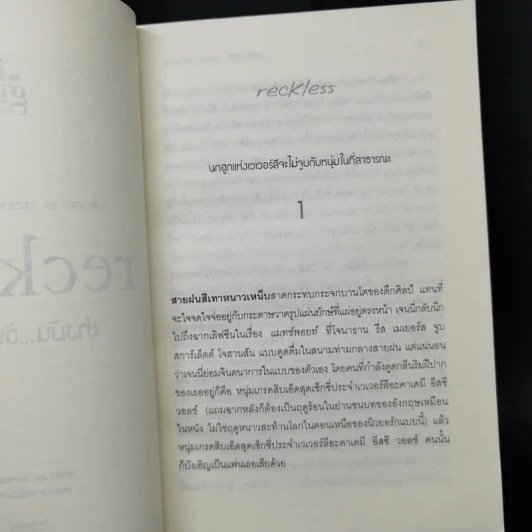 reckless
นกฮูกแห่งเวเวอร์ลีจะไม่จูบกับหนุ่มในที่สาธารณะ
1
สายฝนสีเทาหนาวเหน็บสาดกระทบกระจกบานโตของตึกศิลป์ แทนที่
จะใจจดใจจ่ออยู่กับกระดาษวาดรูปแผ่นยักษ์ที่แผ่อยู่ตรงหน้า เจนนี่กลับนึก
ไปถึงฉากเลิฟซีนในเรื่อง แมทช์พอยท์ ที่โจนาธาน รีส เมเยอร์ส จูบ
สการ์เล็ตต์ โจฮานสัน แบบดูดดื่มในสนามท่ามกลางสายฝน แต่แน่นอน
ว่าเจนนี่ย่อมจินตนาการในแบบของตัวเอง โดยคนที่กำลังดูดกลืนริมฝีปาก
ของเธออยู่ก็คือ หนุ่มเกรดสิบเอ็ดสุดเซ็กซี่ประจำเวเวอร์ลีอะคาเดมี อีสซี่
วอลช์ (แถมฉากหลังก็ต้องเป็นฤดูร้อนในย่านชนบทของอังกฤษเหมือน
ในหนัง ไม่ใช่ฤดูหนาวสะท้านโลกในตอนเหนือของนิวยอร์กแบบนี้) แล้ว
หนุ่มเกรดสิบเอ็ดสุดเซ็กซี่ประจำเวเวอร์ลีอะคาเดมี อีสซี่ วอลช์ คนนั้น
ก็บังเอิญเป็นแฟนเธอเสียด้วย